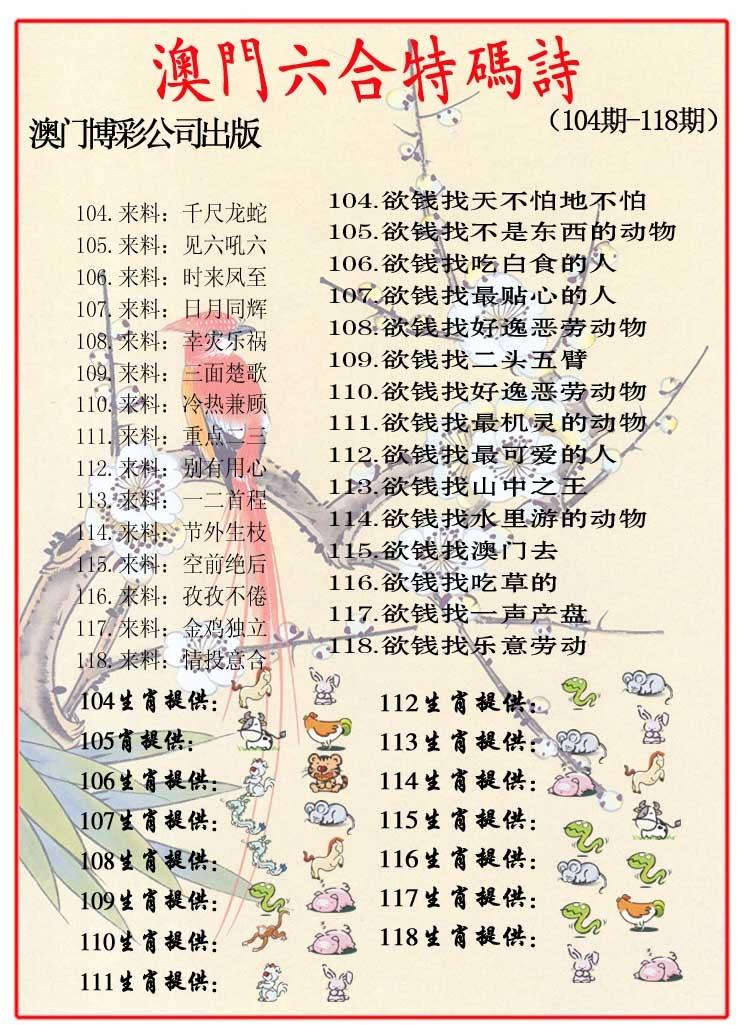 澳門六合特碼詩
澳门博彩公司出版
（104期-118期）
104.来料：千尺龙蛇
105.来料：见六吼六
106.来料：时来凤至
107.来料：日月同辉
108.来料：幸灾乐祸
109.来料：三面楚歌
110.来料：冷热兼顾
111.来料：重点二三
112.来料：别有用心
113.来料：一二首程
114.来料：节外生枝
115.来料：空前绝后
116.来料：孜孜不倦
117.来料：金鸡独立
118.来料：情投意合
104.欲钱找天不怕地不怕
105.欲钱找不是东西的动物
106.欲钱找吃白食的人
107.欲钱找最贴心的人
108.欲钱找好逸恶劳动物
109.欲钱找二头五臂
110.欲钱找好逸恶劳动物
111.欲钱找最机灵的动物
112.欲钱找最可爱的人
113.欲钱找山中之王
114.欲钱找水里游的动物
115.欲钱找澳门去
116.欲钱找吃草的
117.欲钱找一声产盘
118.欲钱找乐意劳动
104生肖提供：
105肖提供：
106生肖提供：
107生肖提供：
108生肖提供：
109生肖提供：
110生肖提供：
111生肖提供：
112生肖提供：
113生肖提供：
114生肖提供：
115生肖提供：
116生肖提供：
117生肖提供：
118生肖提供：